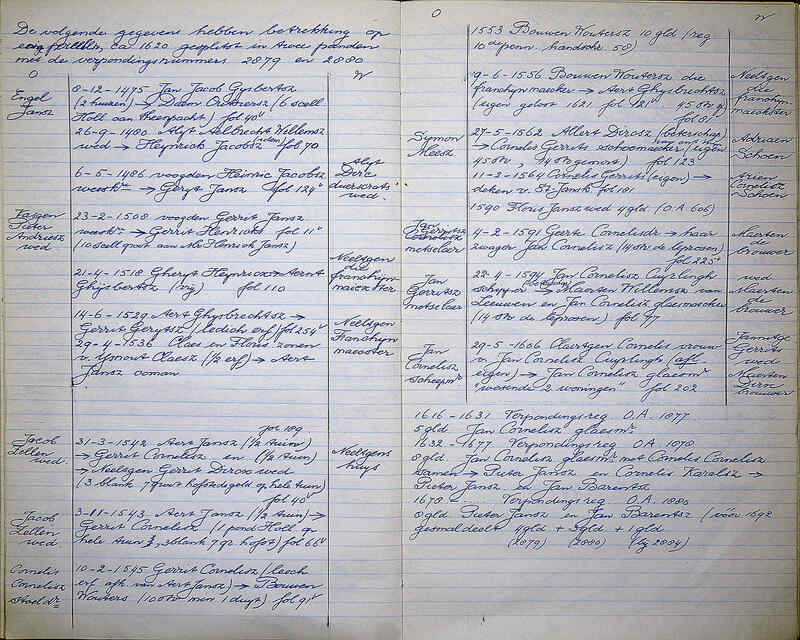 De volgende gegevens hebben betrekking op
ca 1620 gesplitst in twee panden
met de verpondingsnummers 2879 en 2880
O
W
Engel
Jansz
8-12-1475 Jan Jacob Gysbertsz
(2 huizen) → Daem (6 scell
Holl aan heerpacht) fol 40v
26-9-1480 Alyt Aelbrecht Willemsz
wed → Heynrick Jacobsz fol 70
6-5-1486 voogden Heinric Jacobsz
weesk → Geryt Jansz fol 124v
Alyt
Dirc
wed.
Jan
Pieter
Andriesz
wed
23-2-1508 voogden Gerrit Jansz
weesk → Gerrit Henricks fol 11v
(10 scell groot aan Mr Henrick Jansz)
21-4-1518 Gheryt Heynricx → Aernt
Ghysbertsz fol 110
Neeltgen
die
franchyn
maeckster
14-6-1529 Aert Ghysbrechtsz →
Gerrit Gerytsz (ledich erf) fol 254v
29-4-1536 Claes en Floris zonen
v. Ysmout Claesz (1/2 erf) → Aert
Jansz ooman
Neeltgen
Franchyn
maecster
fol 189
Jacob
Lellen
wed.
31-3-1542 Aert Jansz (1/2 tuin)
→ Gerrit Cornelisz en (1/2 tuin)
→ Neeltgen Gerrit Dircx wed
(3 blank 7 grwt hofstedegelt op hele tuin)
fol 40v
Neeltgens
huys
Jacob
Lellen
wed.
3-11-1543 Aert Jansz (1/2 tuin) →
Gerrit Cornelisz (1 pond Holl op
hele tuin &, 3 blank 7 gr hofst) fol 66v
Cornelis
Cornelisz
10-2-1545 Gerrit Cornelisz (leech
erf afk van Aert Jansz) → Bouwen
Wouters (10 str min 1 duyt) fol 91v
O
W
1553 Bouwen Woutersz 10 gld (reg
10de penn. handschr. 58)
19-6-1556 Bouwen Woutersz die
franchynmaecker → Aert Ghysbrechtsz
(eigen geloot 1621 fol 121v 45 str
fol 81v
Neeltgen
die
franchyn
maickster
Symon
Meesz
27-5-1562 Allert Dircsz
→ Cornelis Gerrits schoemaecker (eigen
45 str, fol 123v
Adriaen
Schoen
11-2-1564 Cornelis Gerrits (eigen) →
deken v. St. Jansk fol 181
Arien
Cornelisz
Schoen
1590 Floris Jansz wed 4 gld (O.A. 606)
Jan
Gerritsz
metselaer
4-2-1591 Geertt Cornelisdr → haar
zwager Jan Cornelisz (14 str de leprosen)
fol 225v
Maerten
de
brouwer
Jan
Gerritsz
metselaer
22-4-1594 Jan Cornelisz Cuyrlingh
schipper → Maerten Willemsz van
Leeuwen en Jan Cornelisz glaesmaecker
(14 str de leprosen) fol 77
wed
Maerten
de
brouwer
Jan
Cornelisz
scheepmr
29-5-1606 Claertgen Cornelis vrouw
v. Jan Cornelisz Cuyrlingh (afl.
eigen) → Jan Cornelisz glaesmr
"wesende 2 woningen" fol 202
Jannitge
Gerrits
wed
Maerten
Dircx
brouwer
1616-1631 Verpondingsreg O.A. 1877
5 gld Jan Cornelisz glaesmr
1632-1677 Verpondingsreg O.A. 1878
8 gld Jan Cornelisz glaesmr met Cornelis Cornelisz
samen → Pieter Jansz en Cornelis Karelsz →
Pieter Jansz en Jan Barentsz
1678 .... Verpondingsreg O.A. 1880
8 gld Pieter Jansz en Jan Barentsz (vóór 1692
gesmaldeelt 4 gld + 3 gld + 1 gld
(2879) (2880) (by 2884)